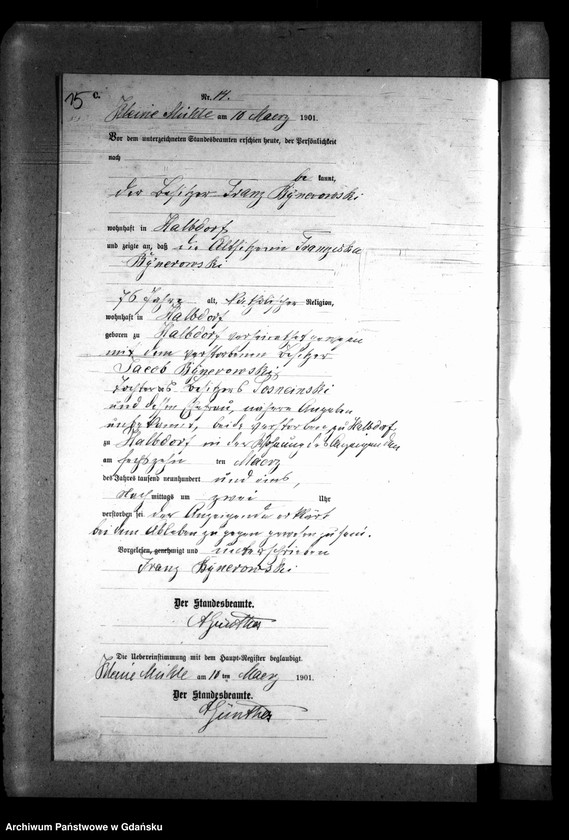 15 C.
Nr. 14.
Kleine Mühle am 10 Maerz 1901.
Vor dem unterzeichneten Standesbeamten erschien heute, der Persönlichkeit
nach
be kannt,
der Besitzer Franz Bÿnerowski
wohnhaft in Halbdorf
und zeigte an, daß die Altsitzerin Franziska
Bÿnerowski
76 Jahre alt, katholischer Religion,
wohnhaft in Halbdorf
geboren zu Halbdorf verheirathet gewesen
mit dem verstorbenen Besitzer
Jacob Bÿnerowski,
Tochter des Besitzers Sosneinski
und dessen Ehefrau, nähere Angaben
unbekannt, beide verstorben zu Halbdorf
zu Halbdorf in der Wohnung des Anzeigenden
am sechszehn ten Maerz
des Jahres tausend neunhundert und eins,
Nach mittags um zwei Uhr
verstorben sei der Anzeigende erklärt
bei dem Ableben zugegen gewesen zu sein.
Vorgelesen, genehmigt und unterschrieben
Franz Bÿnerowski
Der Standesbeamte.
AGünther
Die Uebereinstimmung mit dem Haupt-Register beglaubigt.
Kleine Mühle am 10 ten Maerz 1901.
Der Standesbeamte.
AGünther
Archiwum Państwowe w Gdańsku